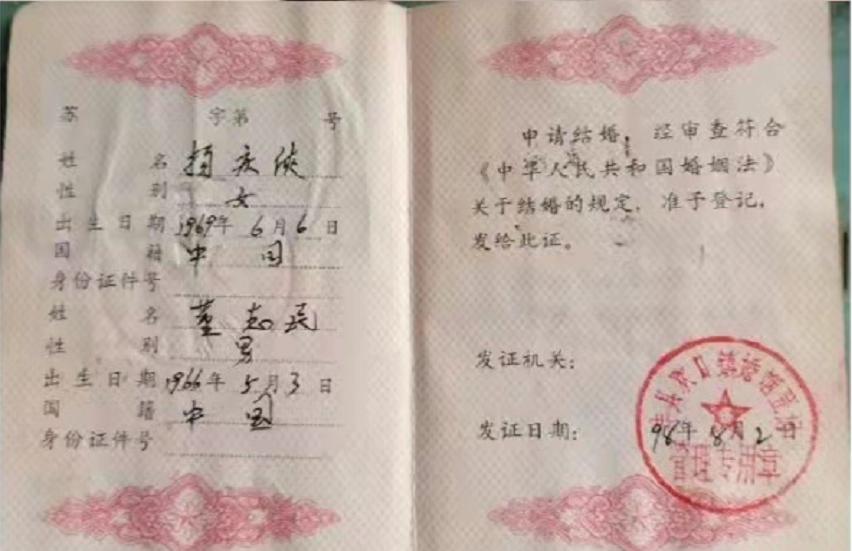 苏 字第 号
姓 名 杨庆侠
性 别 女
出生日期 1969年 6月 6日
国 籍 中 国
身份证件号
姓 名 董志民
性 别 男
出生日期 1966年 5月 3日
国 籍 中 国
身份证件号
申请结婚，经审查符合
《中华人民共和国婚姻法》
关于结婚的规定，准予登记，
发给此证。
发证机关：
发证日期： 98年 8月 2日
管理专用章